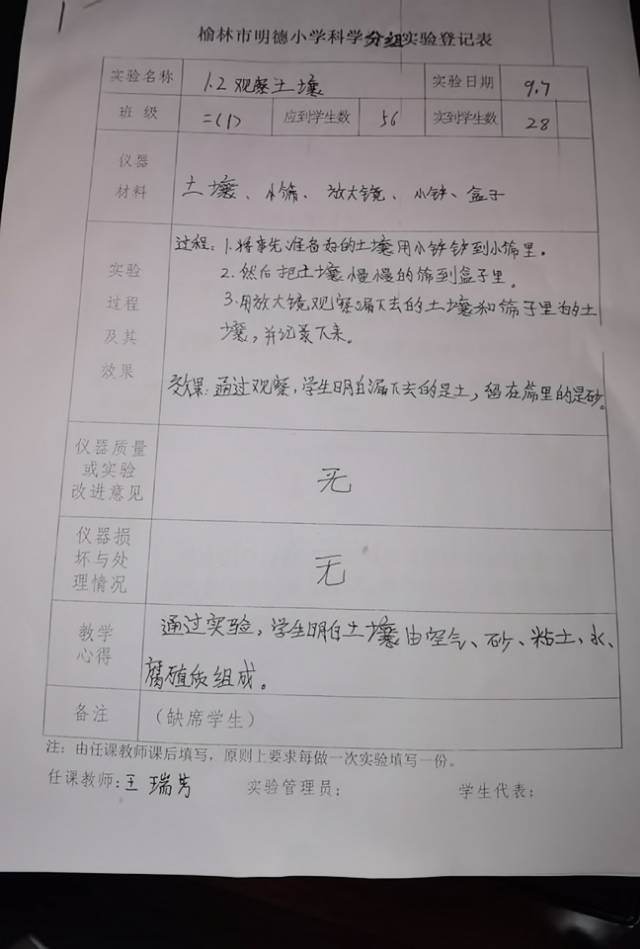 榆林市明德小学科学分组实验登记表
实验名称 1.2 观察土壤 实验日期 9.7
班 级 二(1) 应到学生数 56 实到学生数 28
仪器
材料
土壤、小筛、放大镜、小铲、盒子
实验
过程
及其
效果
过程：1.将事先准备好的土壤用小铲铲到小筛里。
2.然后把土壤慢慢的筛到盒子里。
3.用放大镜观察漏下去的土壤和筛子里的土
壤，并记录下来。
效果：通过观察，学生明白漏下去的是土，留在筛里的是砂。
仪器质量
或实验
改进意见
无
仪器损
坏与处
理情况
无
教学
心得
通过实验，学生明白土壤由空气、砂、粘土、水、
腐殖质组成。
备注 （缺席学生）
注：由任课教师课后填写，原则上要求每做一次实验填写一份。
任课教师：王瑞芳 实验管理员： 学生代表：